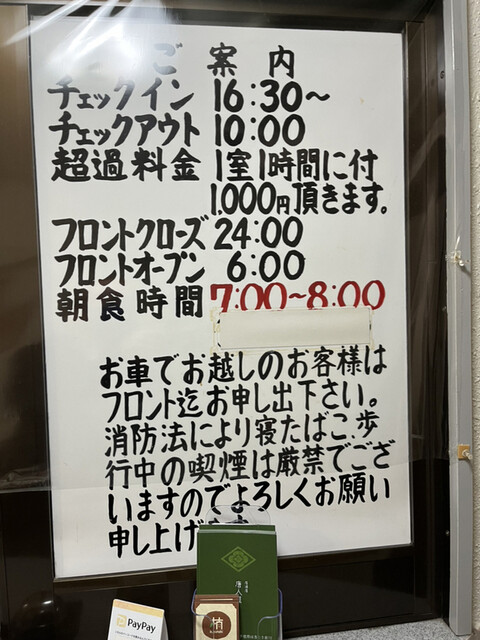 ご案内
チェックイン 16:30～
チェックアウト 10:00
超過料金 1室1時間に付
1.000円頂きます。
フロントクローズ 24:00
フロントオープン 6:00
朝食時間 7:00～8:00
お車でお越しのお客様は
フロント迄お申し出下さい。
消防法により寝たばこ.歩
行中の喫煙は厳禁でござ
いますのでよろしくお願い
申し上げます
PayPay